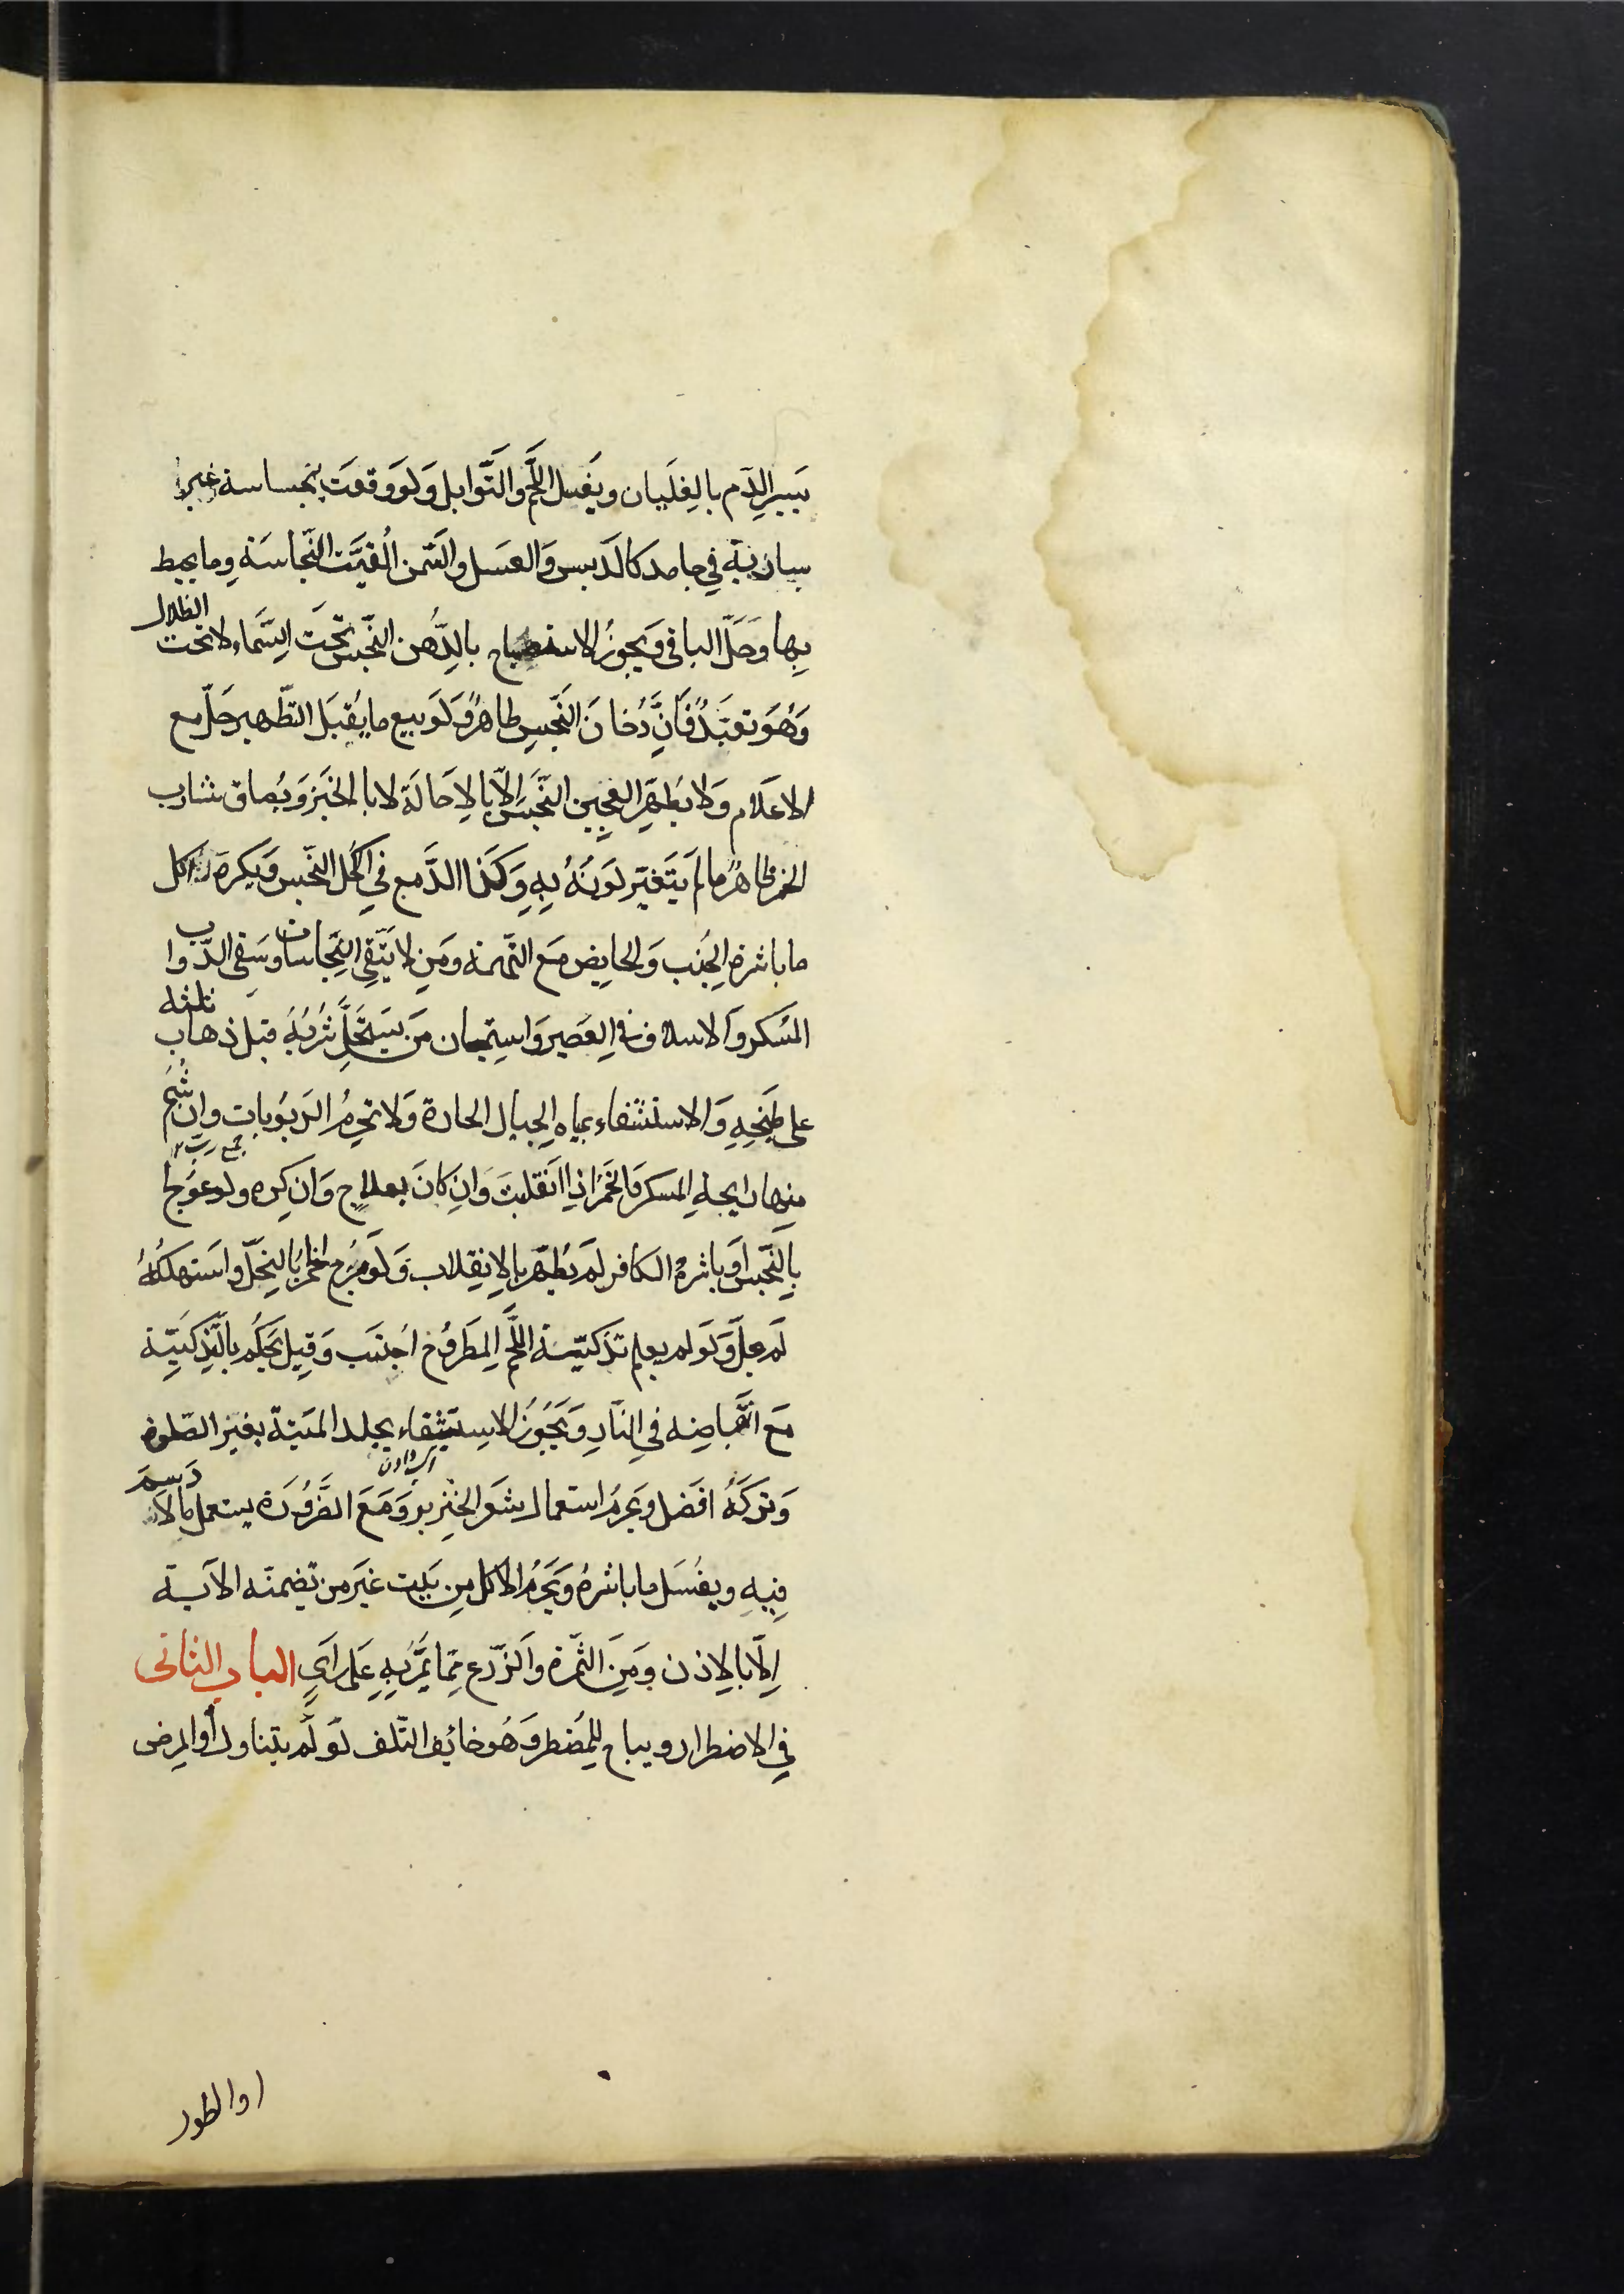 يسير الدّم بالغليان ويغسل اللّحم والتّوابل ولو وقعت نجاسة غير
سارية في جامد كالدّبس والعسل والسّمن القيت النّجاسة وما يحيط
بها وحلّ الباقي ويجوز الاستصباح بالدّهن النّجس تحت السّماء لا تحت الظلال
وهو تعبّد فانّ دخان النّجس طاهر ولو بيع ما يقبل التّطهير حلّ مع
الاعلام ولا يطهّر العجين النّجس الّا بالاحالة لا بالخبز وبصاق شارب
الخمر طاهر ما لم يتغيّر لونه به وكذا الدّمع في الكحل النّجس ويكره اكل
ما باشره الجنب والحايض مع التّهمة ومن لا يتّقي النّجاسات وسقي الدّواب
المسكر والاسلاف في العصير واستيمان من يستحلّ شربه قبل ذهاب ثلثه
على طبخه والاستشفاء بمياه الجبال الحارة ولا تحرم الربوبات وان شمّ
جمع ربّ
منها رايحة المسكر والخمر اذا انقلبت وان كان بعلاج وان كره ولو عولجا
بالنّجس او باشره الكافر لم يطهر بالانقلاب ولو مزج الخمر بالخلّ واستهلكه
لم يحلّ ولو لم يعلم تذكيّة اللّحم المطروح اجتنب وقيل يحكم بالتّذكيّة
مع انقباضه في النّار ويجوز الاستقاء بجلد الميتة بغير الصّلوة
وتركه افضل ويحرم استعمال شعر الخنزير ومع الضّرورة يستعمل ما لا دسم
فيه ويغسل ما باشره ويحرم الاكل من بيت غير من تضمنته الآية
الّا بالاذن ومن الثّمرة والزّرع ممّا يمرّ به على راي الباب الثاني
في الاضطرار ويباح للمضطر وهو خائف التّلف لو لم يتناول او المرض
او الطور